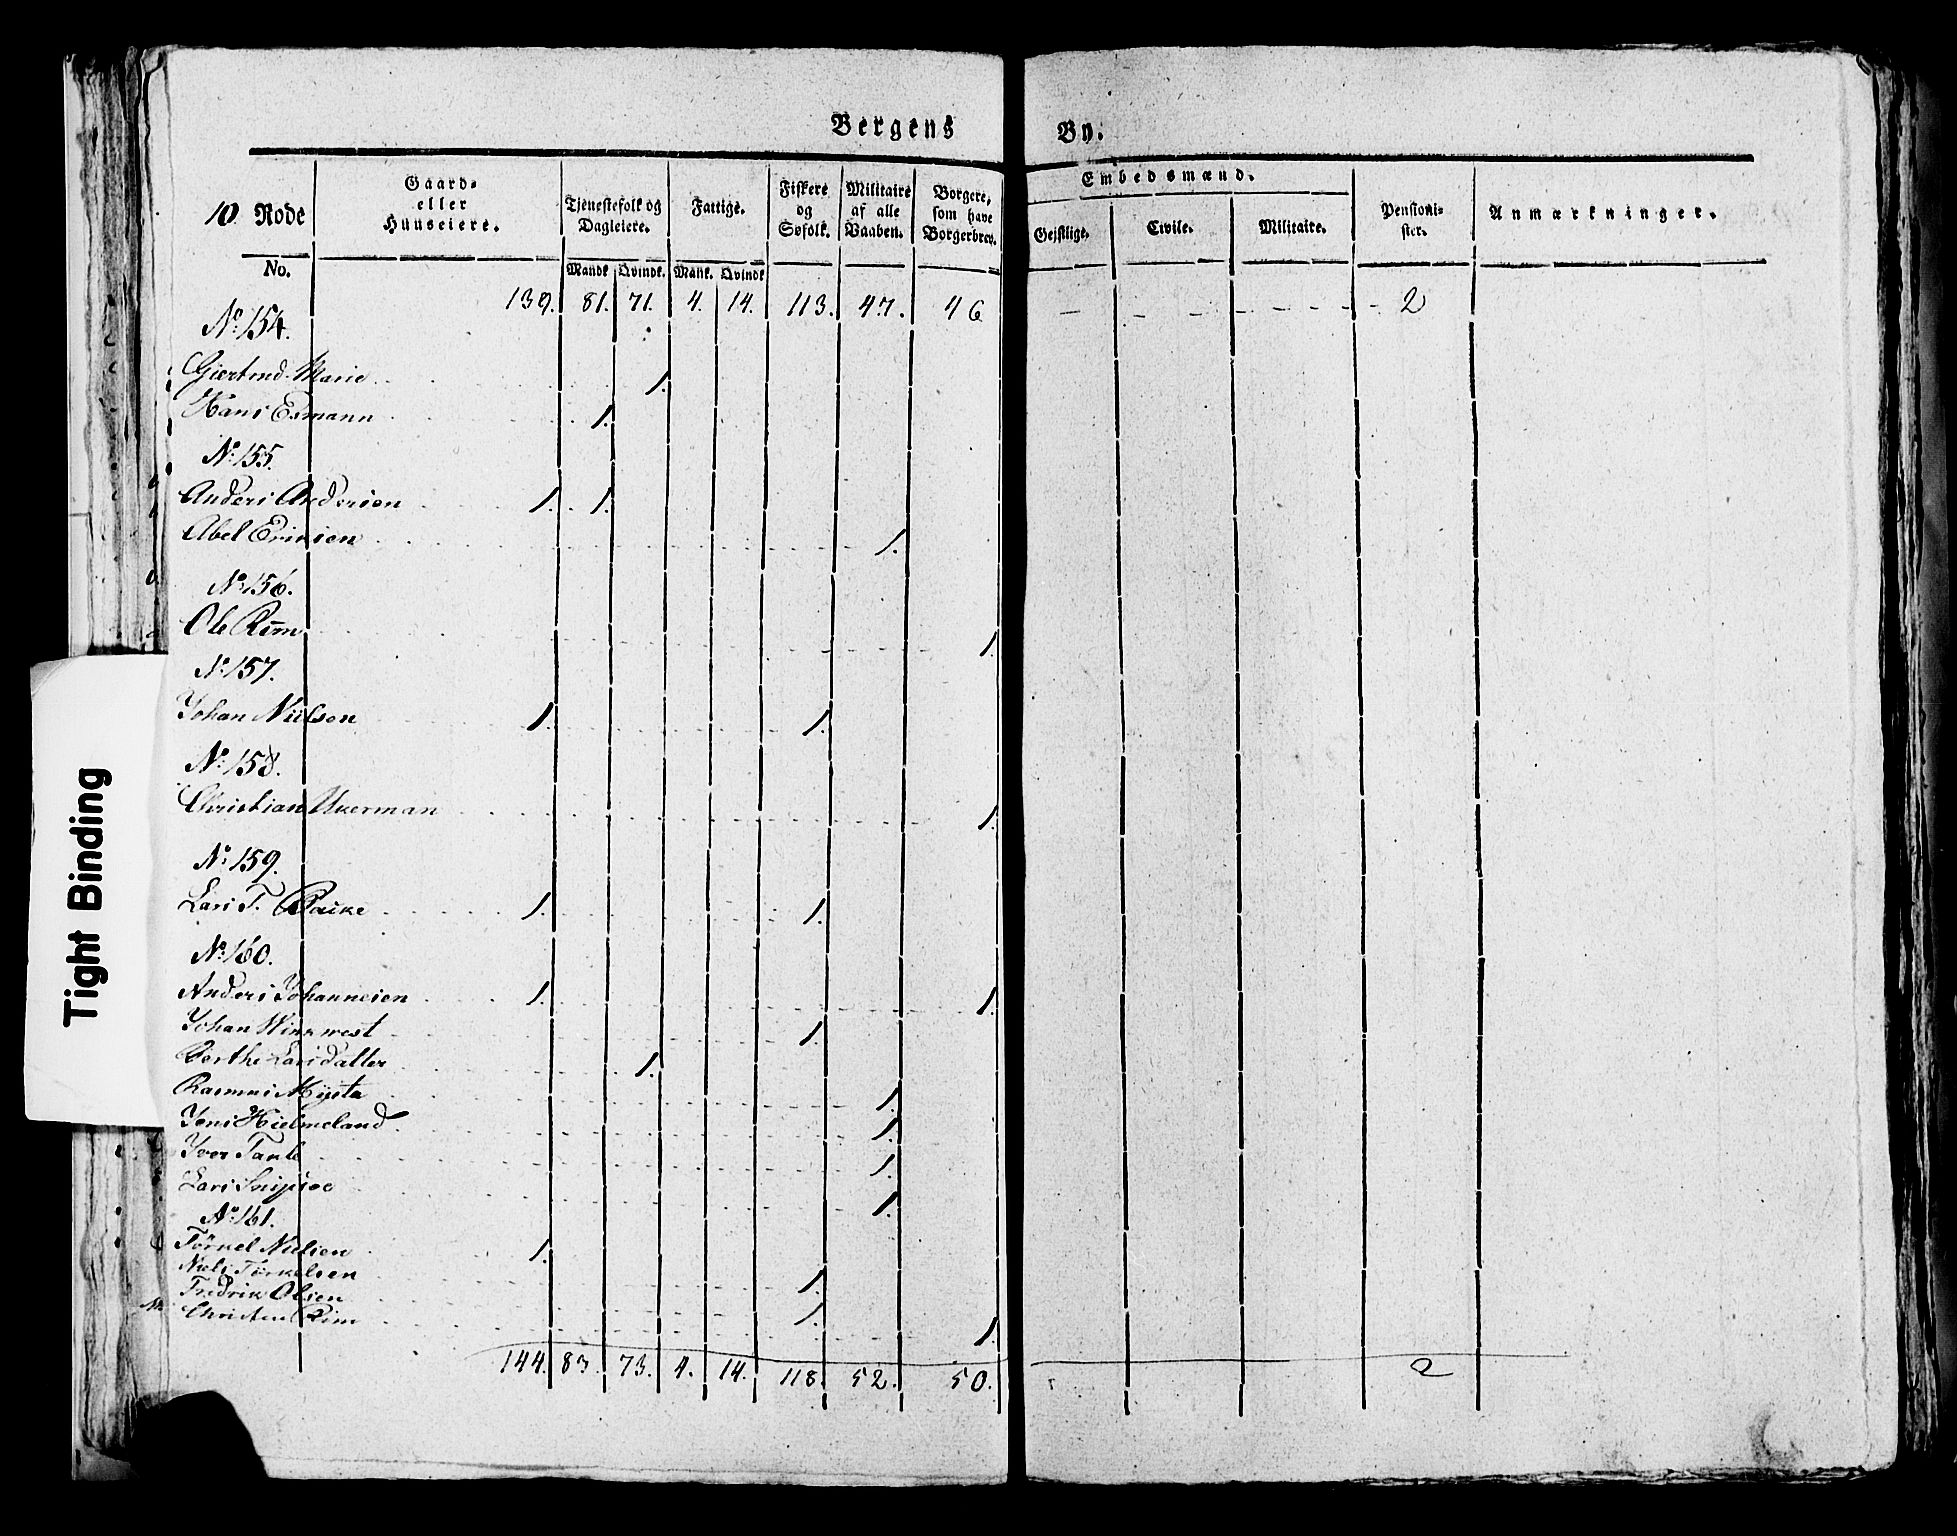 Bergens By.
10 Rode
No.
Gaard-
eller
Huuseiere.
Tjenestefolk og
Dagleiere.
Mandk. Qvindk.
Fattige.
Mank. Qvindk
Fiskere
og
Søfolk.
Militaire
af alle
Vaaben.
Borgere,
som have
Borgerbrev.
Embedsmænd.
Gejstlige. Civile. Militaire.
Pensioni-
ster.
Anmærkninger.
139. 81. 71. 4. 14. 113. 47. 46 2
No 154.
Giertrud Marie 1.
Hans Esmann 1.
No 155.
Anders Andersen 1. 1.
Abel Eriksen 1.
No 156.
Ole Rim 1.
No 157.
Johan Nielson 1. 1.
No 158.
Christian Ukerman 1.
No 159.
Lars T. 1. 1.
No 160.
Anders Johannesen 1. 1.
Johan 1.
Berthe Larsdatter 1.
Rasmus Mysta 1.
Jens Hielmeland 1.
Iver 1.
Lars 1.
No 161.
Törkel Nielsen 1.
Niels Törkelsen 1.
Fredrik Olsen 1.
Christen Rim 1.
144. 83. 73. 4. 14. 118. 52. 50. 2
Tight Binding